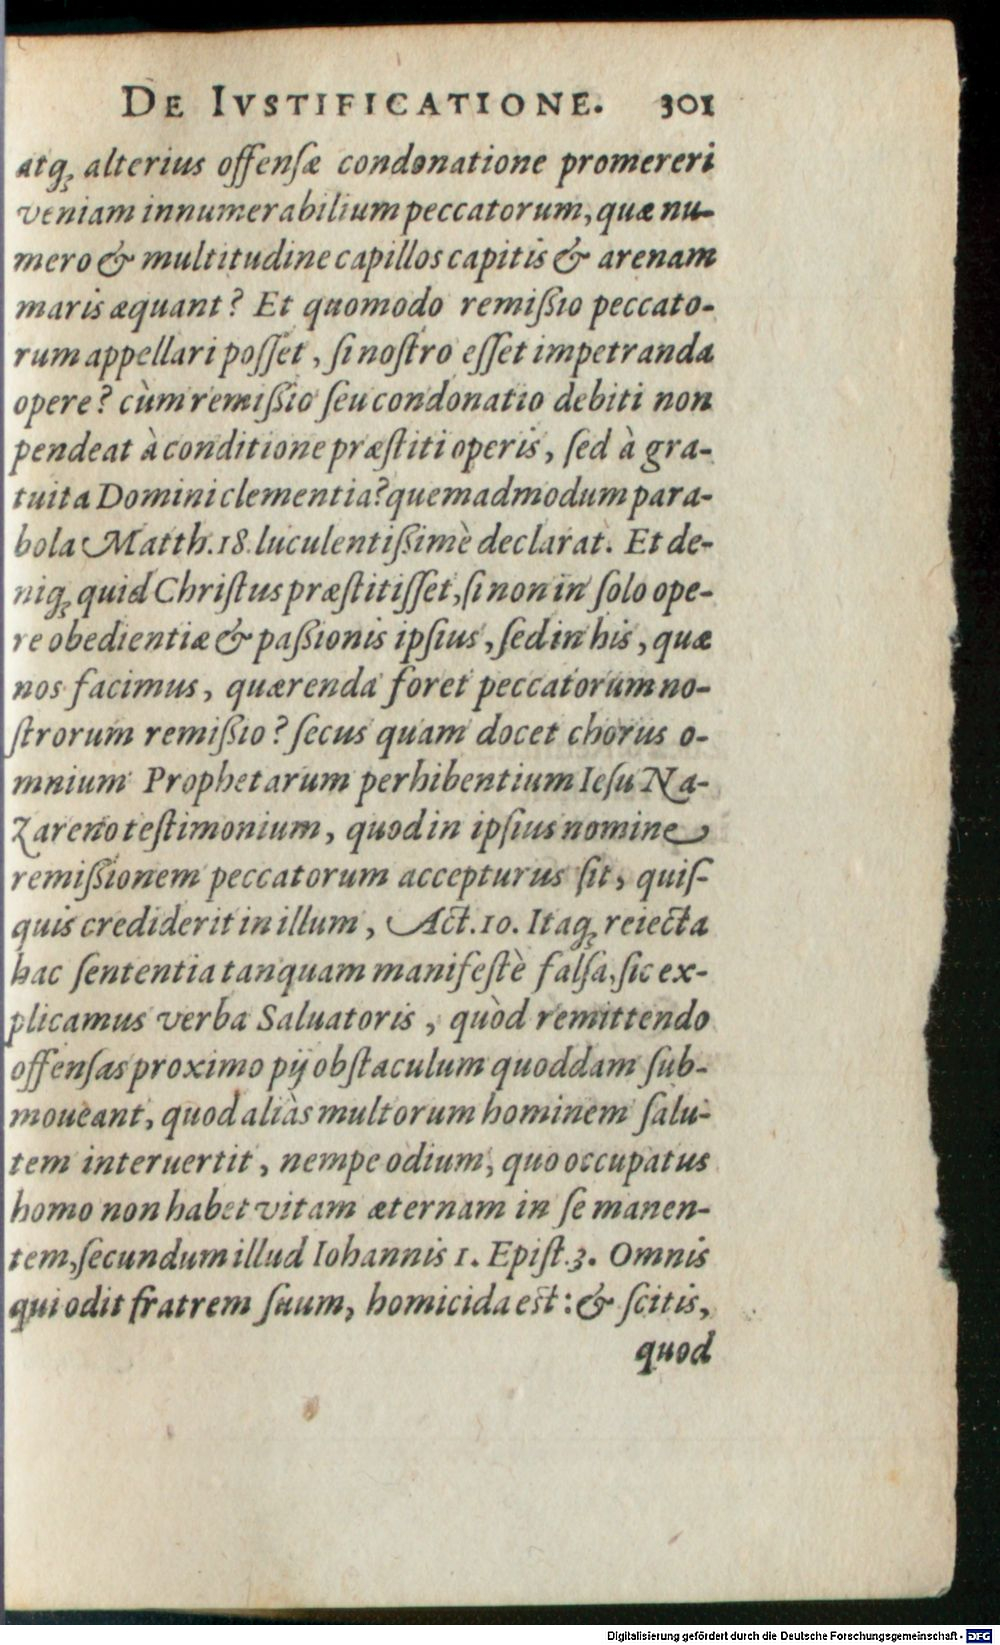 DE IVSTIFICATIONE. 301
atq; alterius offenſæ condonatione promereri
veniam innumerabilium peccatorum, quæ nu-
mero & multitudine capillos capitis & arenam
maris æquant? Et quomodo remißio peccato-
rum appellari poſſet, ſi noſtro eſſet impetranda
opere? cùm remißio ſeu condonatio debiti non
pendeat à conditione præſtiti operis, ſed à gra-
tuita Domini clementia? quemadmodum para-
bola Matth. 18. luculentißimè declarat. Et de-
niq; quid Chriſtus præſtitiſſet, ſi non in ſolo ope-
re obedientiæ & paßionis ipſius, ſed in his, quæ
nos facimus, quærenda foret peccatorum no-
ſtrorum remißio? ſecus quam docet chorus o-
mnium Prophetarum perhibentium Ieſu Na-
zareno teſtimonium, quod in ipſius nomine
remißionem peccatorum accepturus ſit, quiſ-
quis crediderit in illum, Act. 10. Itaq; reiecta
hac ſententia tanquam manifeſtè falſa, ſic ex-
plicamus verba Saluatoris, quòd remittendo
offenſas proximo pij obſtaculum quoddam ſub-
moueant, quod aliàs multorum hominem ſalu-
tem interuertit, nempe odium, quo occupatus
homo non habet vitam æternam in ſe manen-
tem, ſecundum illud Iohannis 1. Epiſt. 3. Omnis
qui odit fratrem ſuum, homicida est: & ſcitis,
quod
Digitalisierung gefördert durch die Deutsche Forschungsgemeinschaft - DFG